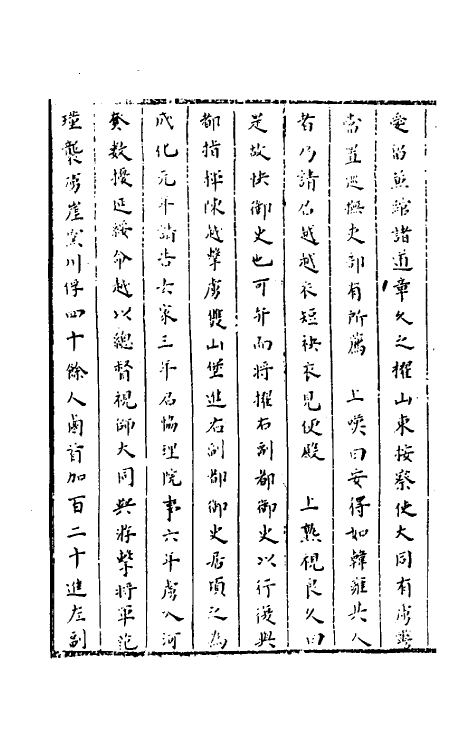 愛留無綰諸道章久之擢山東按察使大同有虜警
當置巡撫吏部有所薦　上嘆曰安得如韓雍其人
者乃請召越越衣短袂衣見便殿　上熟視良久曰
是故快御史也可并而將擢右副都御史以行復與
都指揮陳越擊虜雙山堡進右副都御史居頃之為
成化元年請告去家三年召協理院事六年虜入河
數擾延綏命越以總督視師大同與游擊將軍范
瑾襲虜崖窯川俘四十餘人鹵首加百二十進左副